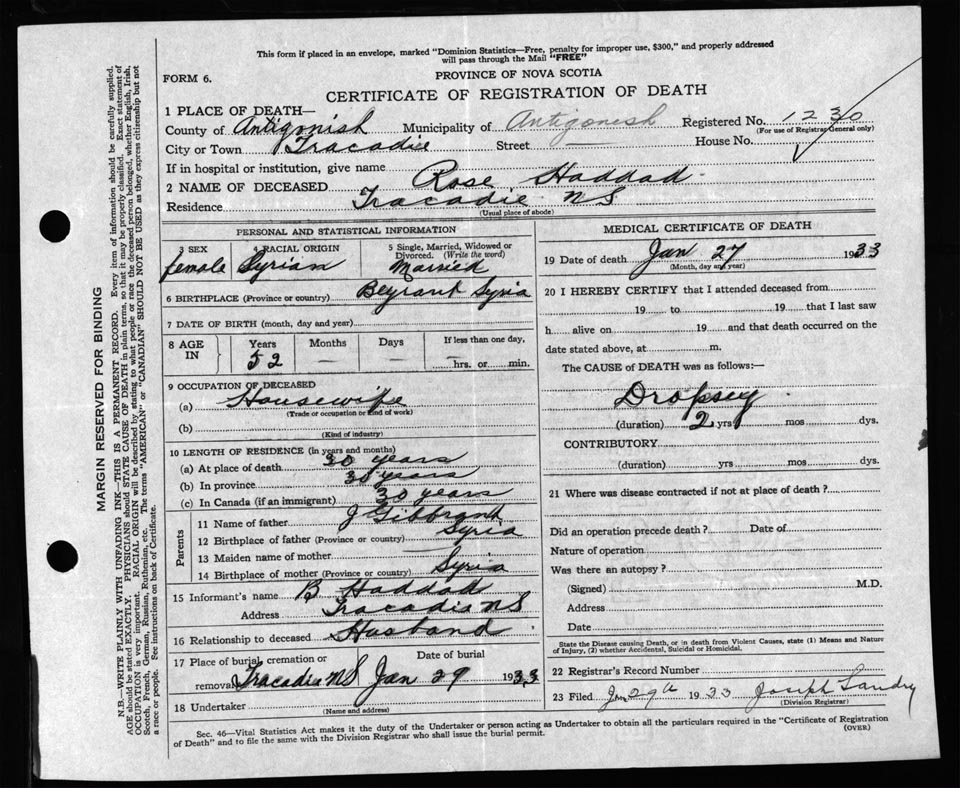 This form if placed in an envelope, marked "Dominion Statistics—Free, penalty for improper use, $300," and properly addressed
will pass through the Mail "FREE"
FORM 6.
PROVINCE OF NOVA SCOTIA
CERTIFICATE OF REGISTRATION OF DEATH
1 PLACE OF DEATH—
County of Antigonish Municipality of Antigonish Registered No. 1230
(For use of Registrar General only)
City or Town Tracadie Street — House No.
If in hospital or institution, give name
2 NAME OF DECEASED Rose Haddad
Residence Tracadie NS
(Usual place of abode)
PERSONAL AND STATISTICAL INFORMATION
3 SEX 4 RACIAL ORIGIN 5 Single, Married, Widowed or Divorced. (Write the word)
female Syrian Married
6 BIRTHPLACE (Province or country) Beyrant Syria
7 DATE OF BIRTH (month, day and year)
8 AGE IN Years Months Days If less than one day,
52 — — hrs. or min.
9 OCCUPATION OF DECEASED
(a) Housewife
(Trade or occupation or kind of work)
(b)
(Kind of industry)
10 LENGTH OF RESIDENCE (in years and months)
(a) At place of death 30 years
(b) In province 30 years
(c) In Canada (if an immigrant) 30 years
Parents
11 Name of father J Gibbrant
12 Birthplace of father (Province or country) Syria
13 Maiden name of mother —
14 Birthplace of mother (Province or country) Syria
15 Informant's name B Haddad
Address Tracadie NS
16 Relationship to deceased Husband
17 Place of burial, cremation or removal Date of burial
Tracadie NS Jan 29 1933
18 Undertaker
(Name and address)
MEDICAL CERTIFICATE OF DEATH
19 Date of death Jan 27 1933
(Month, day and year)
20 I HEREBY CERTIFY that I attended deceased from
19 to 19 that I last saw
h alive on 19 and that death occurred on the
date stated above, at m.
The CAUSE of DEATH was as follows:—
Dropsey
(duration) 2 yrs mos dys.
CONTRIBUTORY
(duration) yrs mos dys.
21 Where was disease contracted if not at place of death?
Did an operation precede death? Date of
Nature of operation
Was there an autopsy?
(Signed) M.D.
Address
Date
State the Disease causing Death, or in death from Violent Causes, state (1) Means and Nature
of Injury, (2) whether Accidental, Suicidal or Homicidal.
22 Registrar's Record Number
23 Filed Jan 29th 1933 Joseph Landry
(Division Registrar)
Sec. 46—Vital Statistics Act makes it the duty of the Undertaker or person acting as Undertaker to obtain all the particulars required in the "Certificate of Registration
of Death" and to file the same with the Division Registrar who shall issue the burial permit.
(OVER)
MARGIN RESERVED FOR BINDING
N.B.—WRITE PLAINLY WITH UNFADING INK—THIS IS A PERMANENT RECORD. Every item of information should be carefully supplied.
AGE should be stated EXACTLY. PHYSICIANS should STATE CAUSE OF DEATH in plain terms, so that it may be properly classified. Exact statement of
OCCUPATION is very important. RACIAL ORIGIN will be described by stating to what people or race the deceased person belonged, whether English, Irish,
Scotch, French, German, Russian, Ruthenian, etc. The terms "AMERICAN" or "CANADIAN" SHOULD NOT BE USED as they express citizenship but not
a race or people. See instructions on back of Certificate.